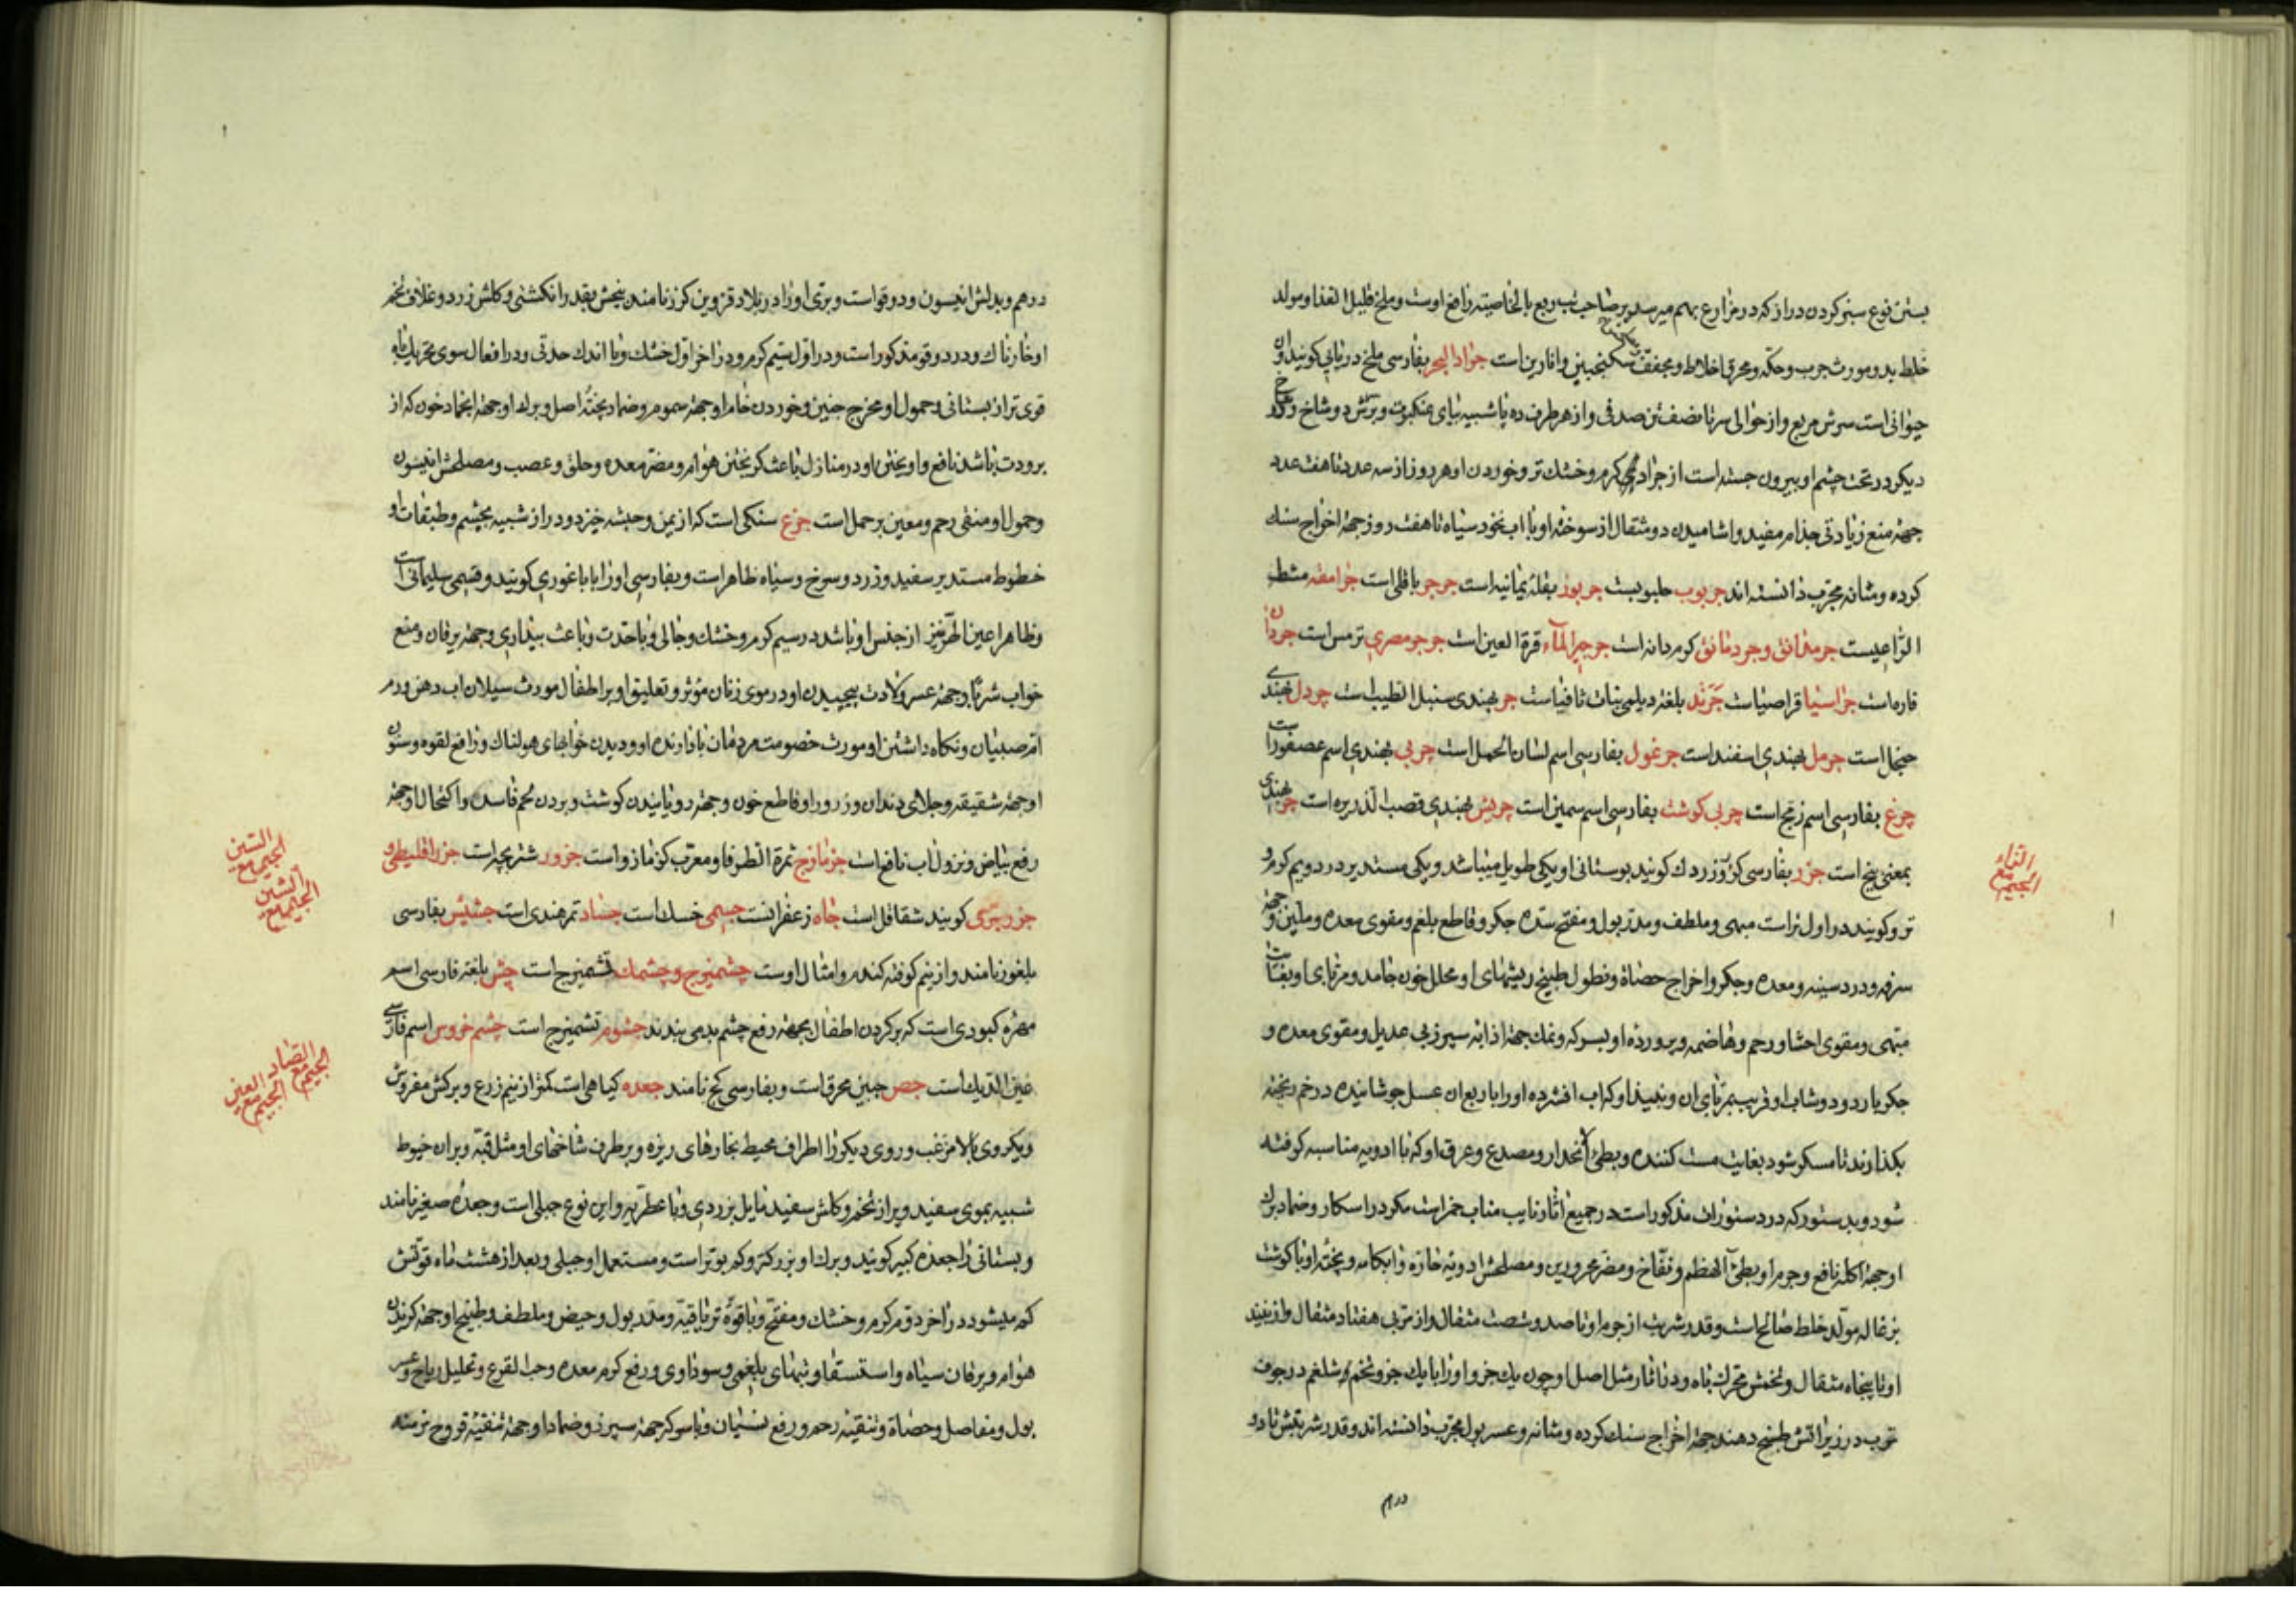 بستن نوع سبز کردن دراز که در مزارع بهم میرسد بر صاحب تب ربع بالخاصیته نافع اوست و ملخ قلیل الغذا و مولد
خلط بد و مورث جرب و حکه و محرق اخلاط و مجفف سکنجبین و انارین است جراد البحر بفارسی ملخ دریایی کویند و ان
حیوانی است سرش مربع و از حوالی سر تا نصف تن صدفی و از هر طرف ده پا شبیه بپای عنکبوت و برسرش دو شاخ و
دیکر در تحت چشم او بیرون جسته است از جراد کرم و خشک تر و خوردن او هر روز از سه عدد تا هفت عدد
جهة منع زیادتی جذام مفید و اشامیدن دو مثقال از سوخته او با اب نخود سیاه تا هفت روز جهة اخراج سنک
کرده و مثانه مجرب دانسته اند جربوب حلبوبست جربوز بقله یمانیه است جرجر باقلی است جرامقه مشط
الراعیست جرمدانق و جردمانق کرم دانه است جرجیر الماء قرة العین است جرجر مصری ترمس است جردان
فاره است جراسیا قراصیا است جرند بلغة دیلمی نبات ثافیا است جر بهندی سنبل الطیب است چردل بهندی
حنجل است جرمل بهندی اسفند است جرغول بفارسی اسم لسان الحمل است چربی بهندی اسم عصفور است
چرغ بفارسی اسم زمج است چربی کوشت بفارسی اسم سمین است چریس بهندی قصب الذریره است چر بهندی
بمعنی بیخ است جزر بفارسی کزر و زردک کویند بوستانی او یکی طویل میباشد و یکی مستدیر در دویم کرم و
تر و کویند در اول تر است مبهی و ملطف و مدر بول و مفتح سده جکر و قاطع بلغم و مقوی معده و ملین و جهة
سرفه و درد سینه و معده و جکر و اخراج حصاة و نطول طبیخ ریشهای او محلل خون جامد و مربای او بغایت
مبهی و مقوی احشا و رحم و هاضمه و پرورده او بسرکه و نمک جهة اذابه سپرز بی عدیل و مقوی معده و
جکر بارد و دوشاب او قریب بمربای ان و نبیذ او که اب افشرده او را با ربع ان عسل جوشانیده در خم ریخته
بکذارند تا مسکر شود بغایت مست کننده و بطی الانحدار و مصدع و عرق او که با ادویه مناسبه کوفته
شود و بدستور که در دستورات مذکور است در جمیع اثار نایب مناب خمر است مکر در اسکار و ضماد برک
او جهة اکله نافع و جرم او بطی الهضم و نفاخ و مضر محرورین و مصلحش ادویه حاره و ابکامه و پخته او با کوشت
بزغاله مولد خلط صالح است و قدر شربت از جرم او تا صد و شصت مثقال و از مربی هفتاد مثقال و از نبیذ
او تا پنجاه مثقال و تخمش محرک باه و در اثار مثل اصل او چون یک جزو او را با یک جزو تخم شلغم در جوف
ترب در زیر اتش طبخ دهند جهة اخراج سنک کرده و مثانه و عسر بول مجرب دانسته اند و قدر شربتش تا دو
درهم
الزاء
مع
الجیم
درهم و بدلش انیسون و دوقو است و بری او را در بلاد قزوین کرزنامند بیخش بقدر انکشتی و کلش زرد و غلاف تخم
او خارناک و در دوقو مذکور است و در اول سیم کرم و در اخر اول خشک و با اندک حدتی و در افعال سوی تحریک باه
قوی تر از بستانی و حمول او مخرج جنین و خوردن خام او جهة سموم و ضماد پخته اصل و برک او جهة انجماد خون که از
برودت باشد نافع و اویختن او در منازل باعث کریختن هوام و مضر معده و حلق و عصب و مصلحش انیسون
و حمول او منقی رحم و معین بر حمل است جزع سنکی است که از یمن و حبشه خیزد و دراز شبیه بچشم و طبقات او
خطوط مستدیر سفید و زرد و سرخ و سیاه ظاهر است و بفارسی او را باباغوری کویند و قسمی سلیمانی است
و ظاهرا عین الهر نیز از جنس او باشد در سیم کرم و خشک و جالی و با حدت و باعث بیداری و جهة یرقان و منع
خواب شربا و جهة عسر ولادت پیچیدن او در موی زنان مؤثر و تعلیق او بر اطفال مورث سیلان اب دهن و رم
ام صبیان و نکاه داشتن او مورث خصومت مردمان با دارنده او و دیدن خوابهای هولناک و رافع لقوه و سنون
او جهة شقیقه و جلای دندان و زرور او قاطع خون و جهة رویانیدن کوشت و بردن لحم فاسد و اکتحال او جهة
رفع بیاض و نزول اب نافع است جزمازج ثمرة الطرفا و معرب کزمازو است جزور شتر بچه است جزر اقلیطی و
جزر بری کویند شقاقل است جاه زعفرانست جسمی خسک است جساد تمر هندی است جشیش بفارسی
بلغور نامند و از نیم کوفته کندم و امثال اوست چشمیزج و چشمک تشمیزج است چش بلغة فارسی اسم
مهره کبودی است که بر کردن اطفال بجهة رفع چشم بد می بندند جشوم تشمیزج است چشم خروس اسم فارسی
عین الدیک است جص جبین محرق است و بفارسی کچ نامند جعده کیاهی است کمتر از نیم زرع و برکش مفروش
و یکروی بالا مزغب و روی دیکر را اطراف محیط بخارهای ریزه و بر طرف شاخهای او مثل قبه و بران خیوط
شبیه بموی سفید و پر از تخم و کلش سفید مایل بزردی و با عطریه و این نوع جبلی است و جعده صغیر نامند
و بستانی را جعده کبیر کویند و برک او بزرکتر و کم بوتر است و مستعمل او جبلی و بعد از هشت ماه قوتش
کم میشود در اخر دوم کرم و خشک و مفتح و با قوه تریاقیه و مدر بول و حیض و ملطف و طبیخ او جهة کزیدن
هوام و یرقان سیاه و استسقا و تبهای بلغمی و سوداوی و رفع کرم معده و حب القرع و تحلیل ریاح و عسر
بول و مفاصل و حصاة و تنقیه رحم و رفع نسیان و با سرکه جهة سپرز و ضماد او جهة تنقیه قروح مزمنه
السین
الجیم مع
الشین
الجیم مع
الصاد
مع
الجیم
العین
مع
الجیم